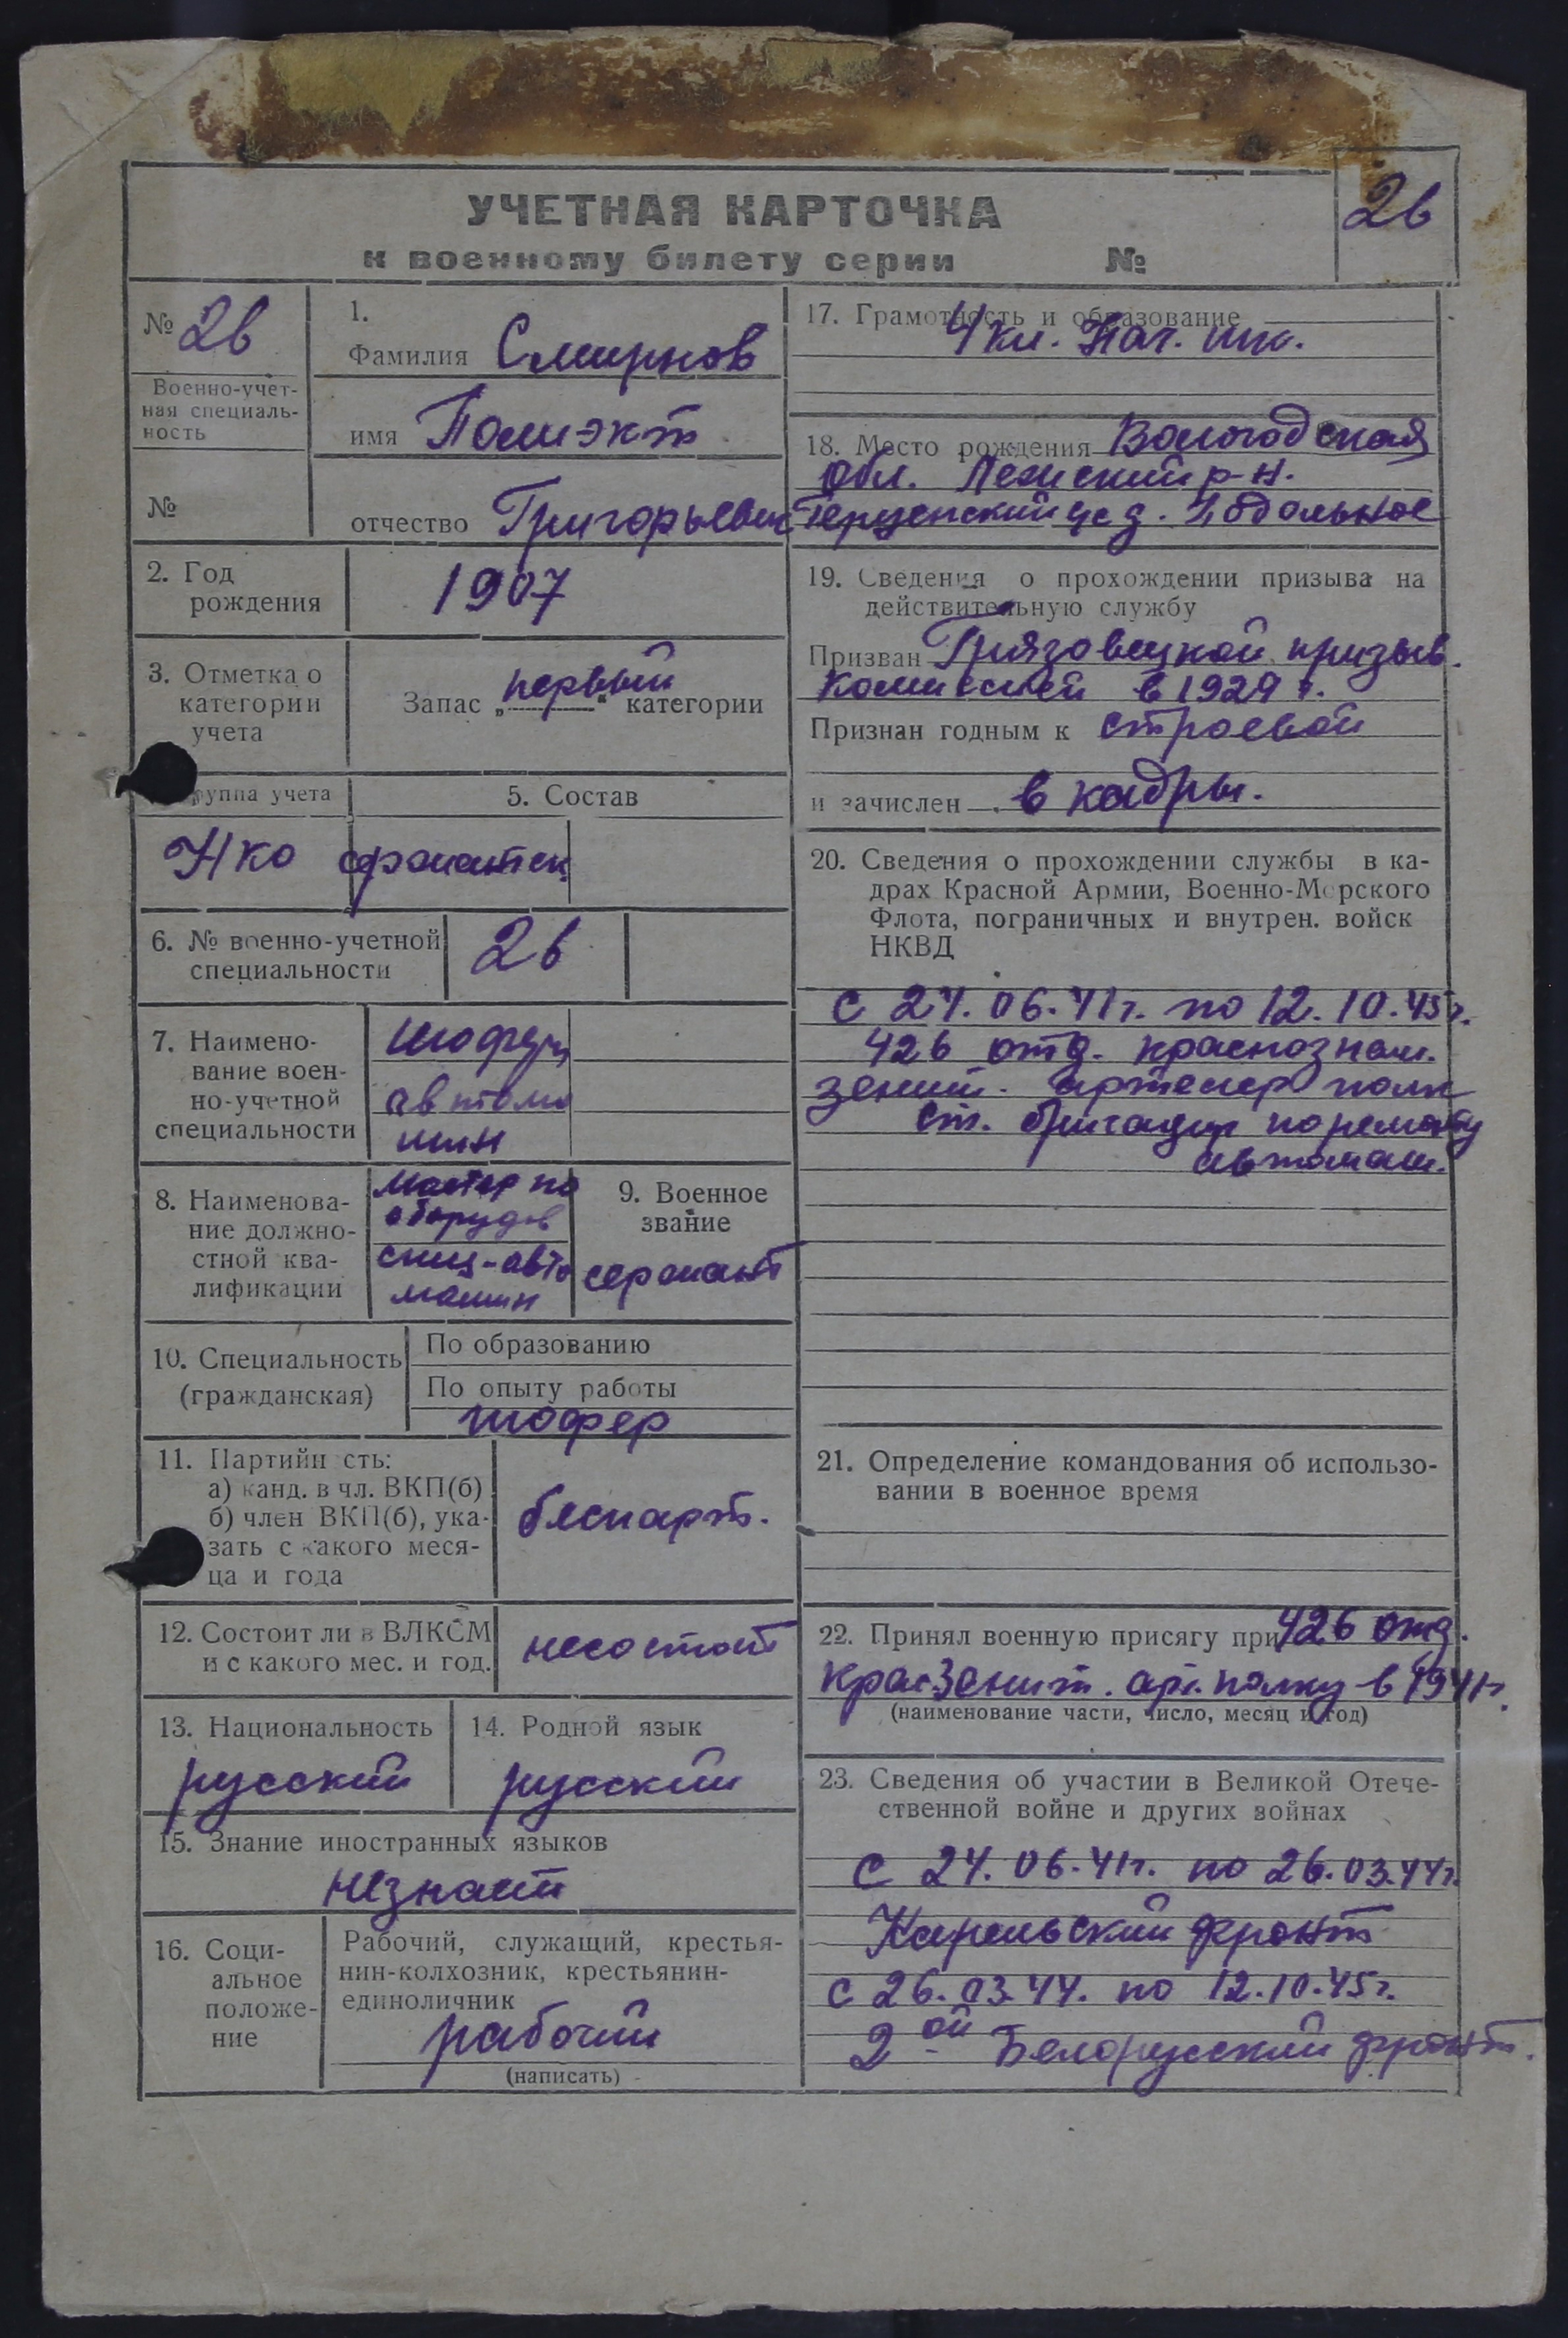 26
УЧЕТНАЯ КАРТОЧКА
к военному билету серии №
№ 26
Военно-учет-
ная специаль-
ность
№
1.
Фамилия Смирнов
имя Полиэкт
отчество Григорьевич
2. Год
рождения
1907
3. Отметка о
категории
учета
Запас „первый“ категории
руппа учета
НКО
5. Состав
сержантск.
6. № военно-учетной
специальности
26
7. Наимено-
вание воен-
но-учетной
специальности
шофер
автома
шин
8. Наименова-
ние должно-
стной ква-
лификации
мастер по
оборудов
спец-авто
машин
9. Военное
звание
сержант
10. Специальность
(гражданская)
По образованию
По опыту работы
шофер
11. Партийн сть:
а) канд. в чл. ВКП(б)
б) член ВКП(б), ука-
зать с какого меся-
ца и года
беспарт.
12. Состоит ли в ВЛКСМ
и с какого мес. и год.
несостоит
13. Национальность
русский
14. Родной язык
русский
15. Знание иностранных языков
незнает
16. Соци-
альное
положе-
ние
Рабочий, служащий, крестья-
нин-колхозник, крестьянин-
единоличник
рабочий
(написать)
17. Грамотность и образование
4 кл. Нач. шк.
18. Место рождения Вологодская
обл. Лежский р-н.
д. Подольное
19. Сведения о прохождении призыва на
действительную службу
Призван Грязовецкой призыв.
комиссией в 1929 г.
Признан годным к строевой
и зачислен в кадры.
20. Сведения о прохождении службы в ка-
драх Красной Армии, Военно-Морского
Флота, пограничных и внутрен. войск
НКВД
с 24.06.41г. по 12.10.45г.
426 отд. краснознам.
зенит. артелер полк
ст. бригадир по ремонту
автомаш.
21. Определение командования об использо-
вании в военное время
22. Принял военную присягу при 426 отд.
крас зенит. арт. полку в 1941г.
(наименование части, число, месяц и год)
23. Сведения об участии в Великой Отече-
ственной войне и других войнах
с 24.06.41г. по 26.03.44г.
Карельский фронт
с 26.03.44. по 12.10.45г.
2ой Белорусский фронт.